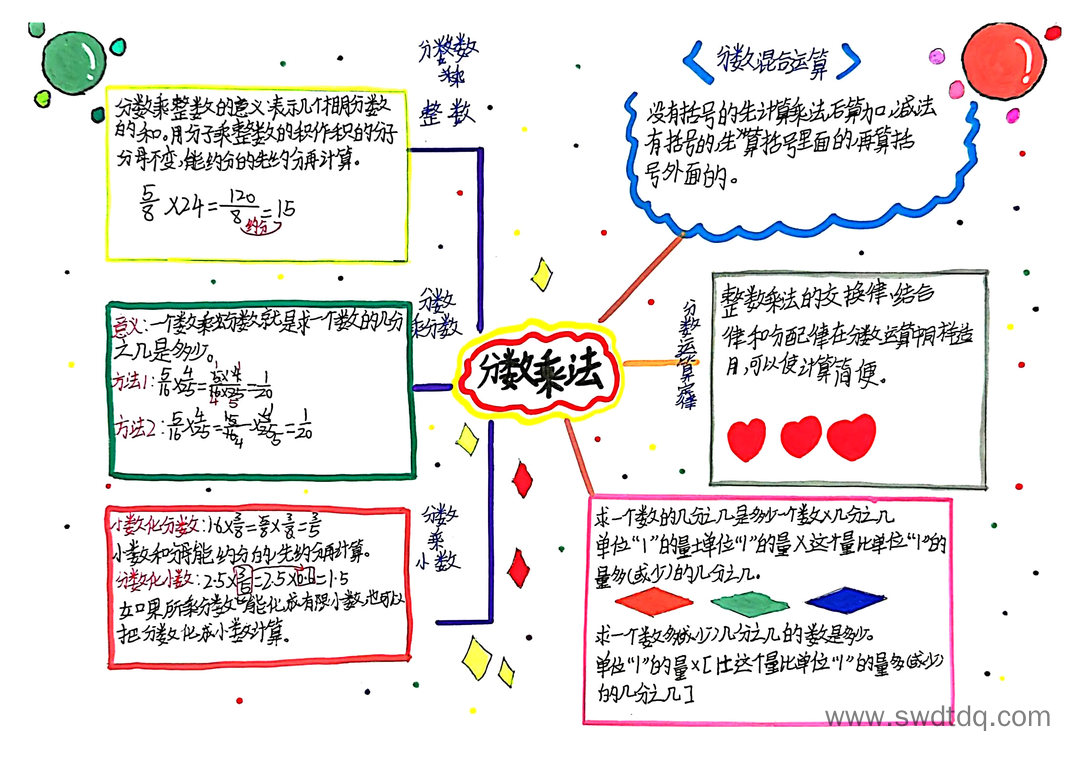 分数乘法
分数
乘
整数
分数乘整数的意义:表示几个相同分数
的和。用分子乘整数的积作积的分子
分母不变,能约分的先约分再计算。
5/8×24=120/8=15
约分
分数
乘分数
意义:一个数乘分数就是求一个数的几分
之几是多少。
方法1:5/16×4/5=5×4/16×5=1/20
方法2:5/16×4/5=
=1/20
分数
乘
小数
小数化分数:1.6×3/8=8/5×3/8=3/5
小数和分母能约分的,先约分再计算。
分数化小数:2.5×
=2.5×0.6=1.5
如果所乘分数能化成有限小数,也可以
把分数化成小数计算。
<分数混合运算>
没有括号的先计算乘法,后算加、减法
有括号的,先算括号里面的,再算括
号外面的。
分数运算律
整数乘法的交换律、结合
律和分配律在分数运算中同样适
用,可以使计算简便。
求一个数的几分之几是多少一个数×几分之几
单位“1”的量±单位“1”的量×这个量比单位“1”的
量多(或少)的几分之几。
求一个数多(或少)几分之几的数是多少。
单位“1”的量×[1±这个量比单位“1”的量多(或少)
的几分之几]
www.swdtdq.com